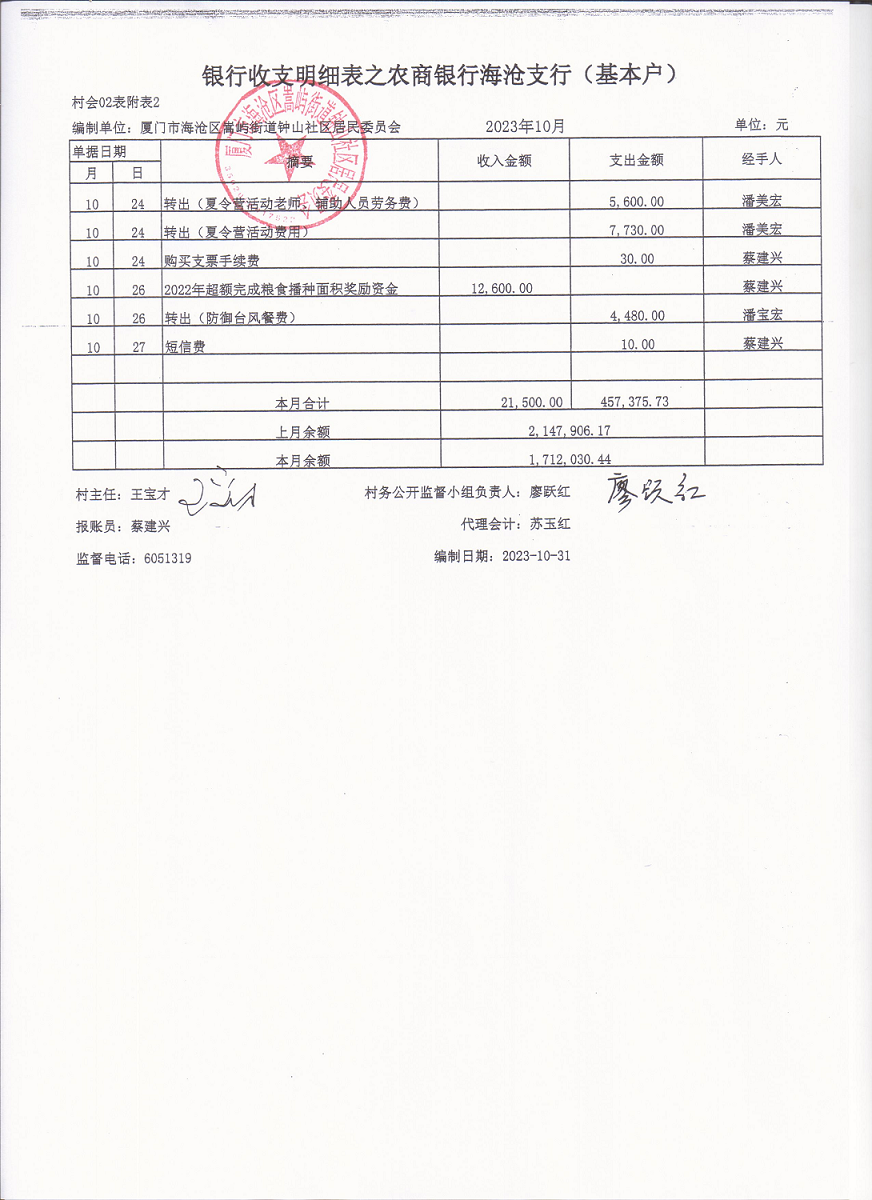 银行收支明细表之农商银行海沧支行（基本户）
村会02表附表2
编制单位：厦门市海沧区嵩屿街道钟山社区居民委员会 2023年10月 单位：元
单据日期 摘要 收入金额 支出金额 经手人
月 日
10 24 转出（夏令营活动老师、辅助人员劳务费） 5,600.00 潘美宏
10 24 转出（夏令营活动费用） 7,730.00 潘美宏
10 24 购买支票手续费 30.00 蔡建兴
10 26 2022年超额完成粮食播种面积奖励资金 12,600.00 蔡建兴
10 26 转出（防御台风餐费） 4,480.00 潘宝宏
10 27 短信费 10.00 蔡建兴
本月合计 21,500.00 457,375.73
上月余额 2,147,906.17
本月余额 1,712,030.44
村主任：王宝才 村务公开监督小组负责人：廖跃红 廖跃红
报账员：蔡建兴 代理会计：苏玉红
监督电话：6051319 编制日期：2023-10-31
厦门市海沧区嵩屿街道钟山社区居民委员会